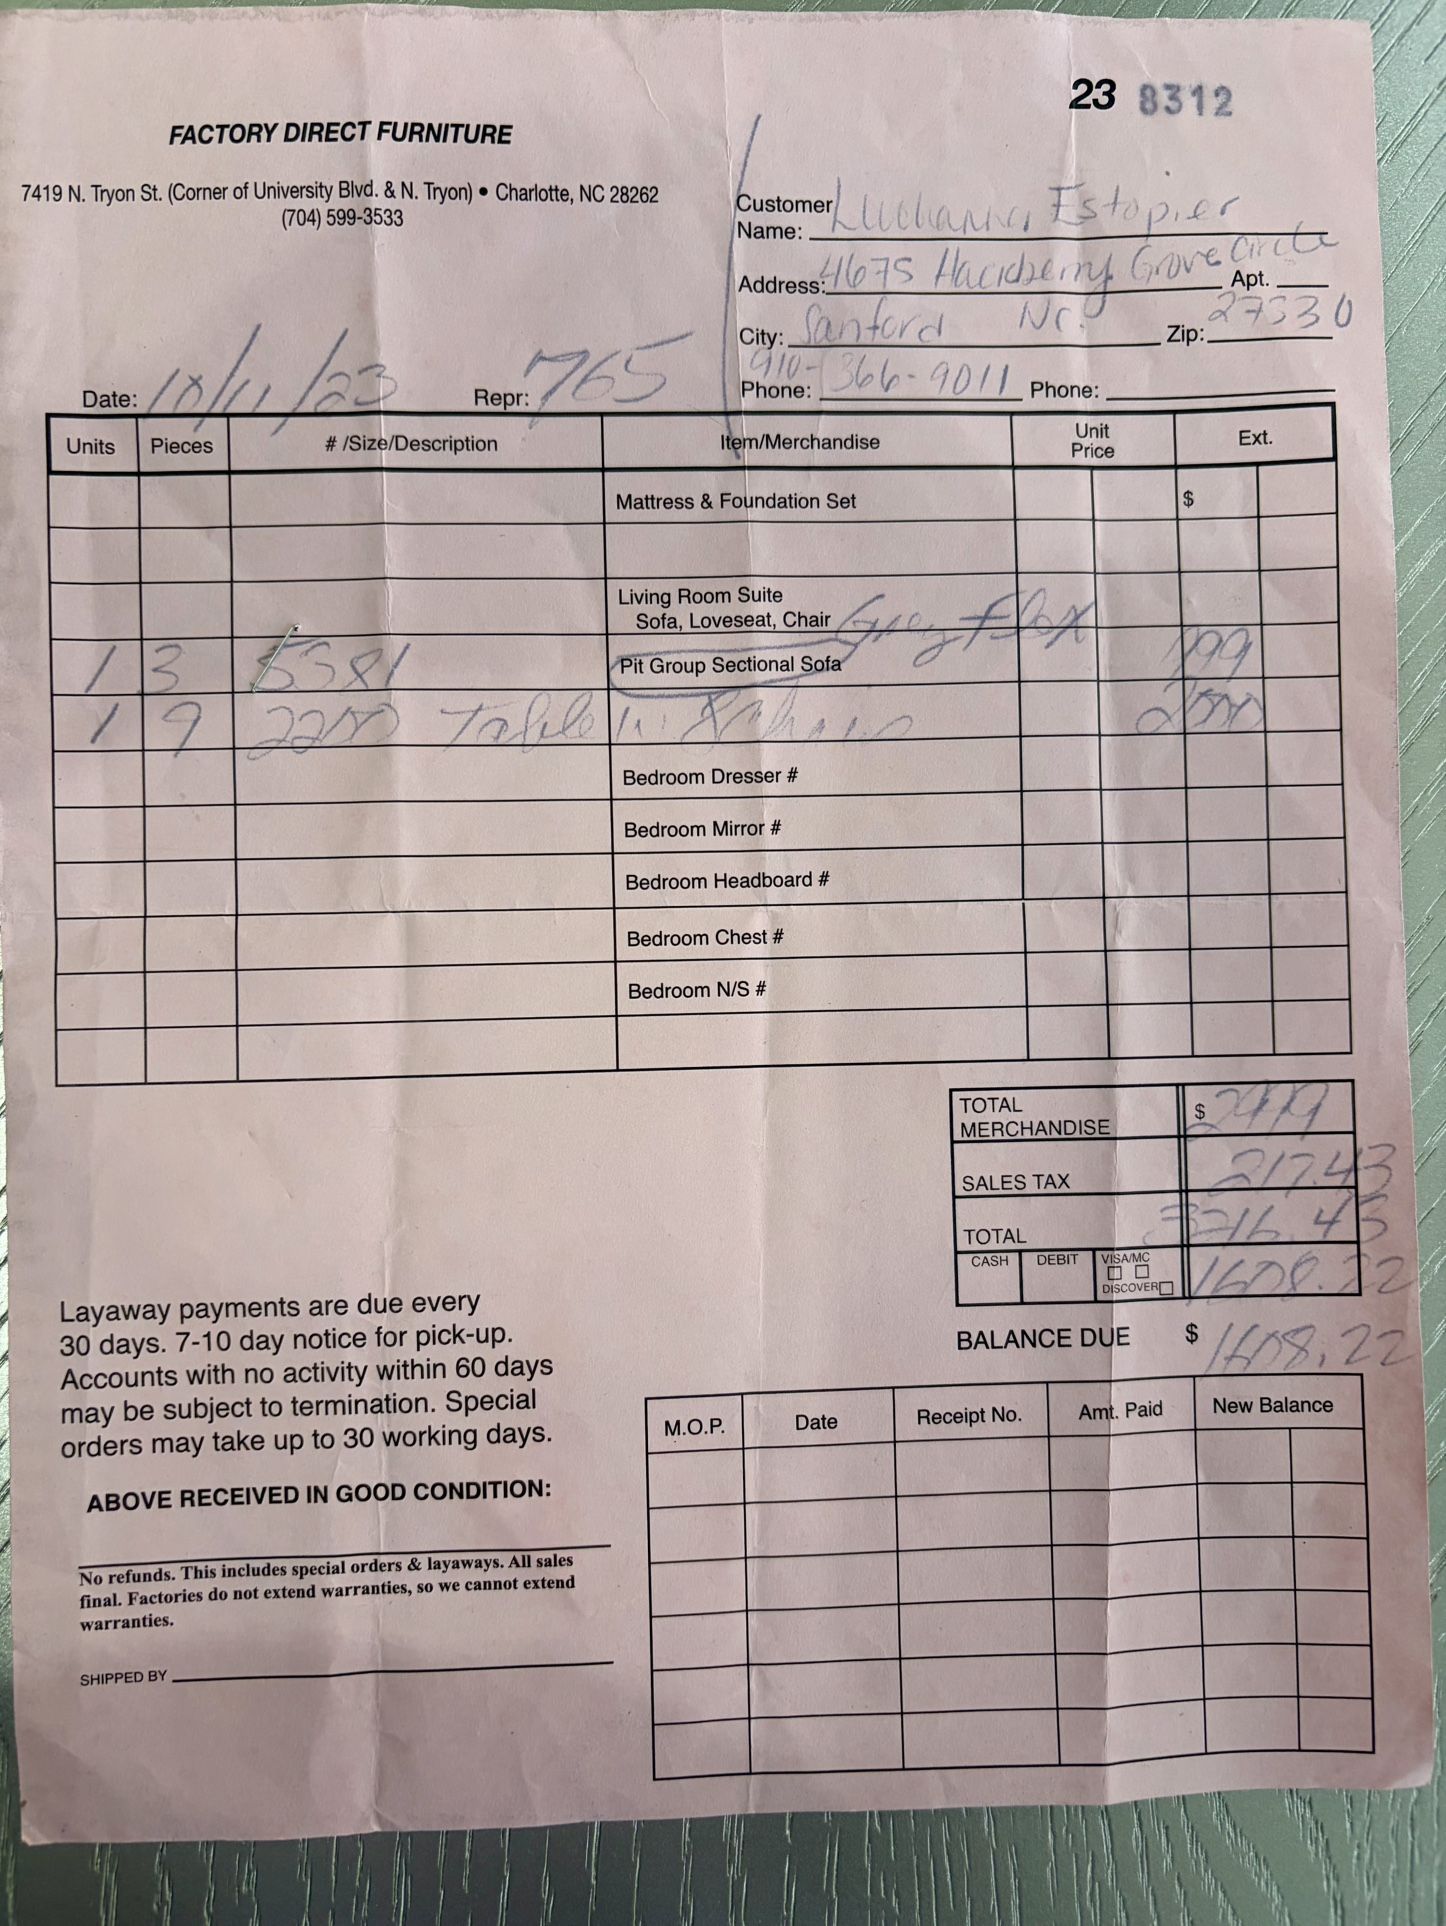 23 8312
FACTORY DIRECT FURNITURE
7419 N. Tryon St. (Corner of University Blvd. & N. Tryon) • Charlotte, NC 28262
(704) 599-3533
Customer
Name: Estopier
Address: 4675 Hackberry Grove Circle Apt.
City: Sanford Nc. Zip: 27330
Date: 10/11/23 Repr: 765 Phone: 910-366-9011 Phone:
Units Pieces # /Size/Description Item/Merchandise Unit Price Ext.
Mattress & Foundation Set $
Living Room Suite
Sofa, Loveseat, Chair Grey
1 3 5381 Pit Group Sectional Sofa 999
1 9 2200 Table 2000
Bedroom Dresser #
Bedroom Mirror #
Bedroom Headboard #
Bedroom Chest #
Bedroom N/S #
TOTAL
MERCHANDISE $ 2999
SALES TAX 217.43
TOTAL 3216.43
CASH DEBIT VISA/MC
DISCOVER 1608.22
BALANCE DUE $ 1608.22
Layaway payments are due every
30 days. 7-10 day notice for pick-up.
Accounts with no activity within 60 days
may be subject to termination. Special
orders may take up to 30 working days.
ABOVE RECEIVED IN GOOD CONDITION:
No refunds. This includes special orders & layaways. All sales
final. Factories do not extend warranties, so we cannot extend
warranties.
SHIPPED BY
M.O.P. Date Receipt No. Amt. Paid New Balance